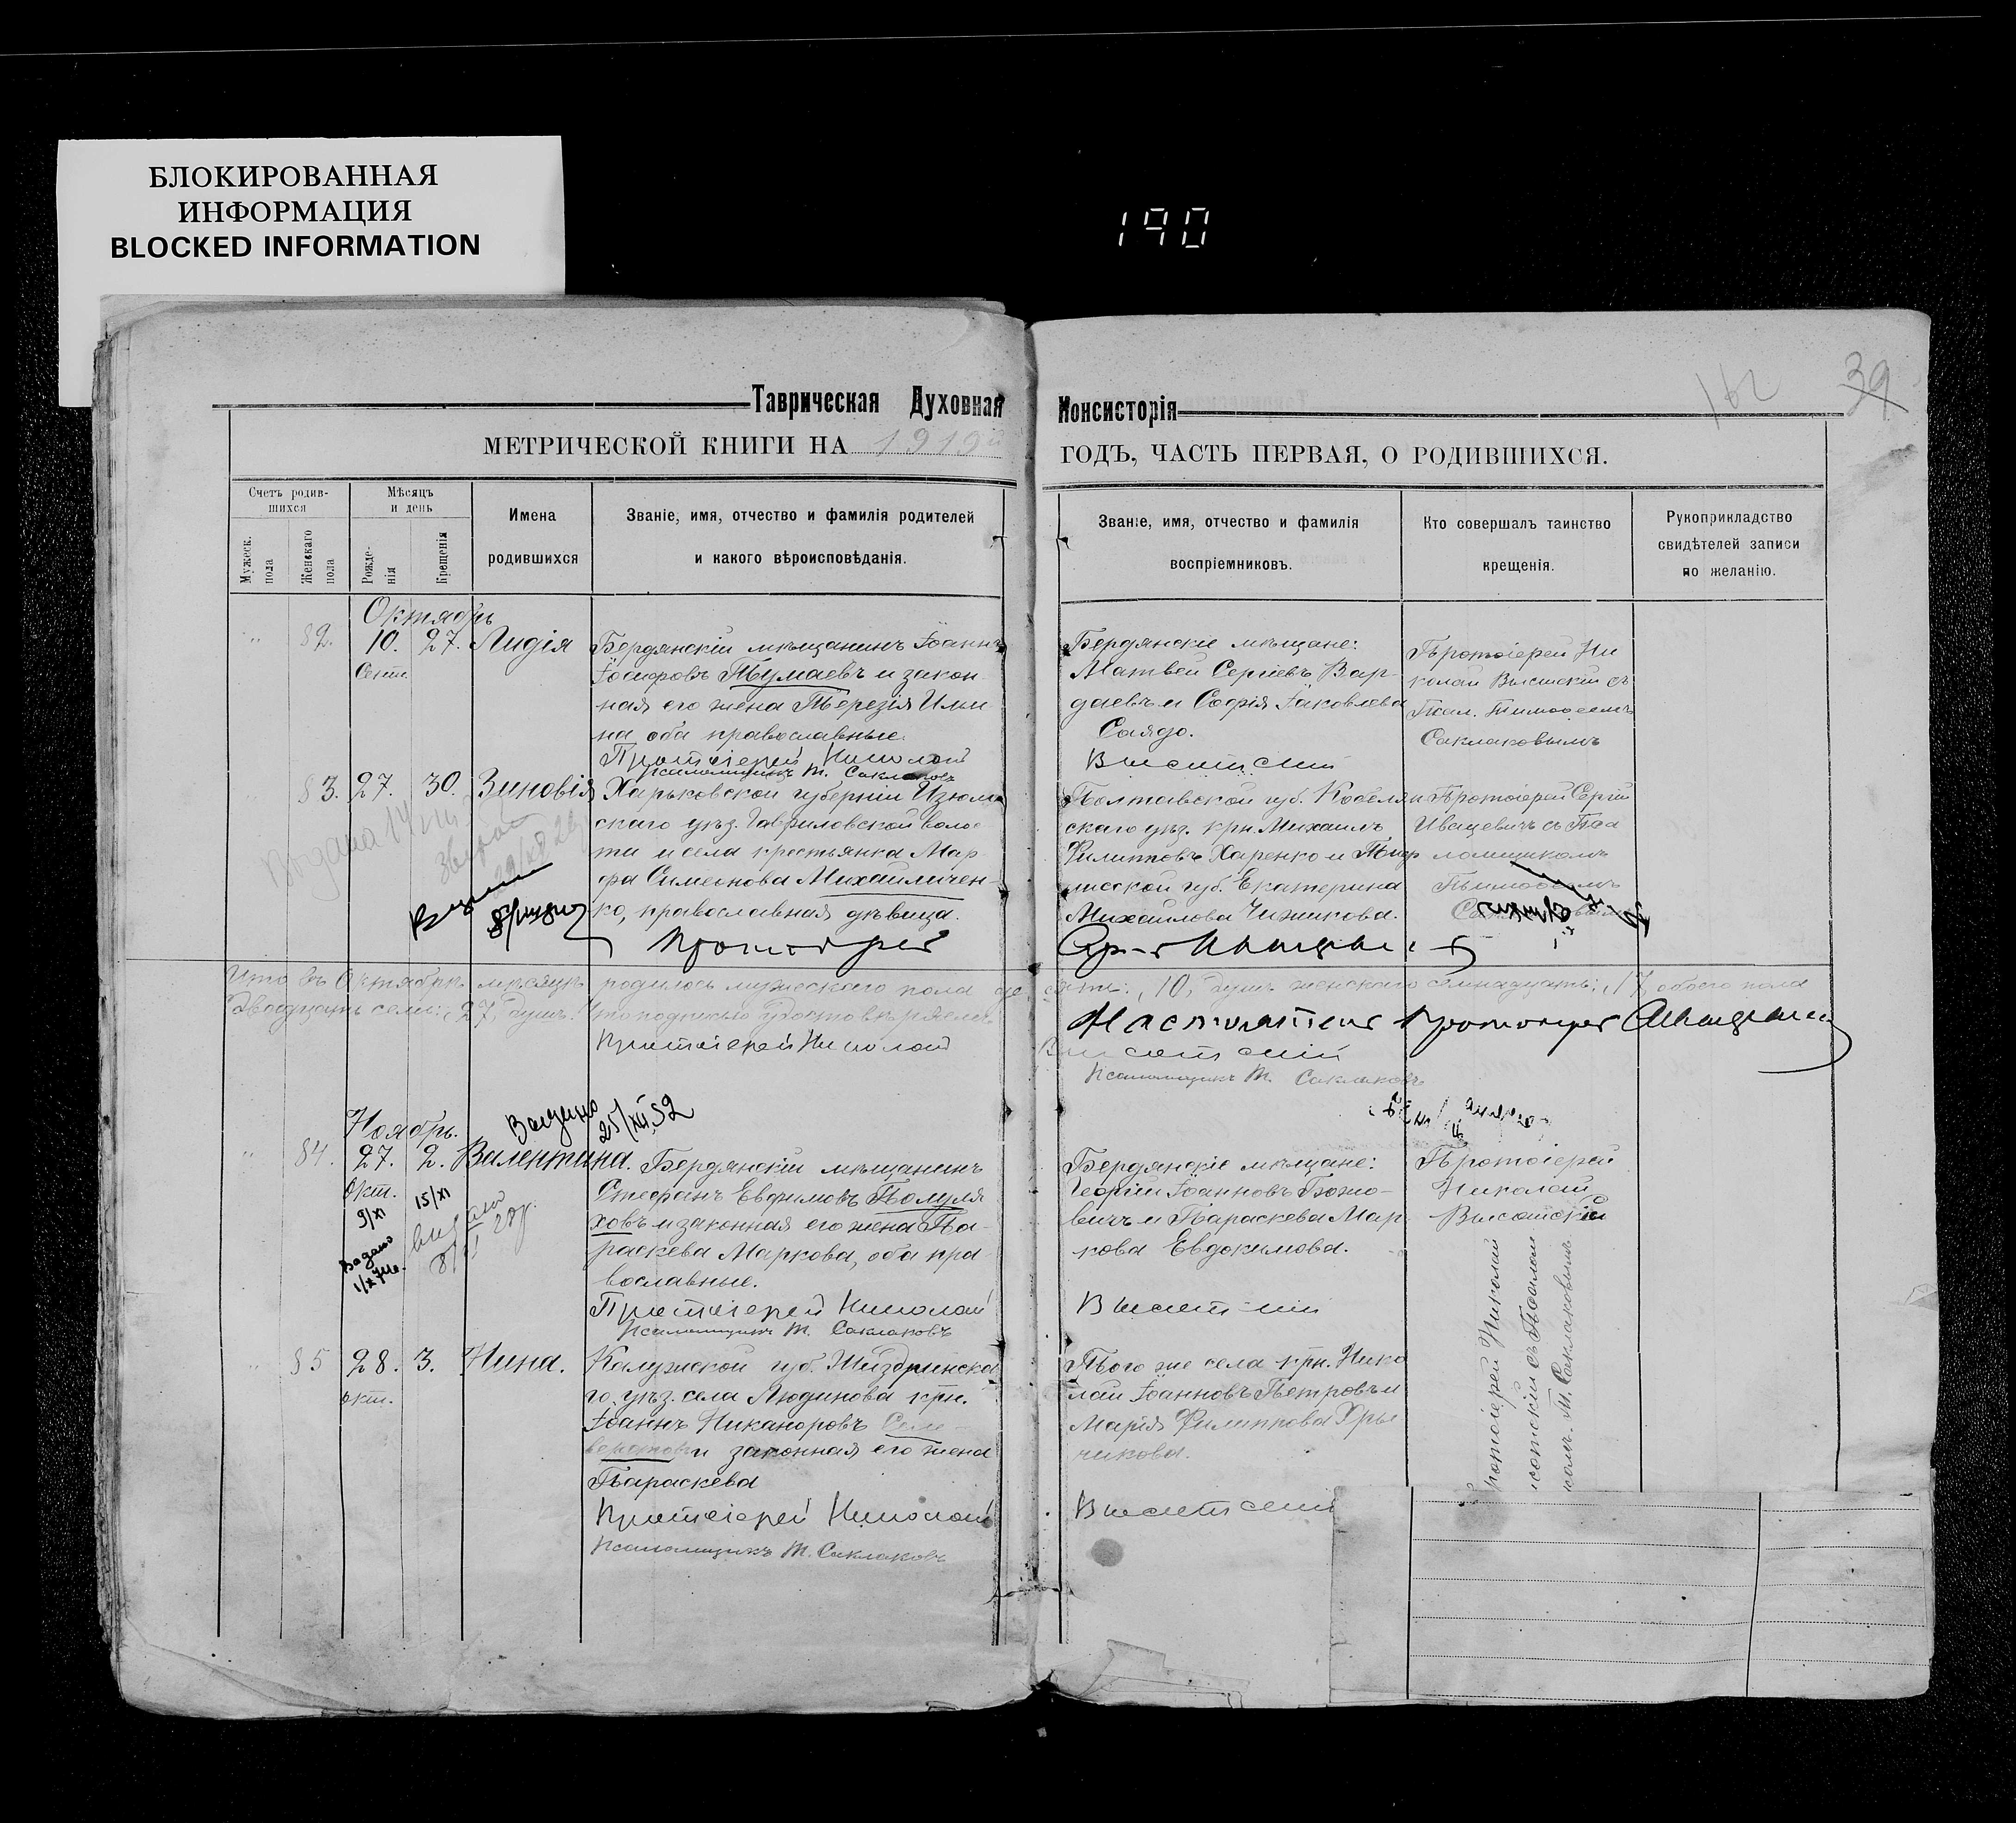 БЛОКИРОВАННАЯ
ИНФОРМАЦИЯ
BLOCKED INFORMATION
190
162
39
Таврическая Духовная Консисторія
МЕТРИЧЕСКОЙ КНИГИ НА 1919й ГОДЪ, ЧАСТЬ ПЕРВАЯ, О РОДИВШИХСЯ.
Счетъ родив-
шихся
Мужеск.
пола
Женскаго
пола
Мѣсяцъ
и день
Рожде-
нія
Крещенія
Имена
родившихся
Званіе, имя, отчество и фамилія родителей
и какого вѣроисповѣданія.
Званіе, имя, отчество и фамилія
воспріемниковъ.
Кто совершалъ таинство
крещенія.
Рукоприкладство
свидѣтелей записи
по желанію.
Октябрь
82. 10. 27. Лидія
Сент.
Бердянскій мѣщанинъ Іоаннъ
Іосифовъ Тумаевъ и закон
ная его жена Терезія Ильи
на оба православные.
Протоіерей Николай
Псаломщикъ Т. Саклаковъ
Бердянскіе мѣщане:
Матвей Сергіевъ Вар-
даевъ и Софія Іаковлева
Саядо.
Высотскій
Протоіерей Ни
колай Высотскій съ
Псал. Тимофеемъ
Саклаковымъ
83. 27. 30. Зиновія
Харьковской губерніи Изюм
скаго уѣз. Гавриловской волос
ти и села крестьянка Мар
фа Симеонова Михайличен-
ко, православная дѣвица.
Протоіерей
Полтавской губ. Кобеляк
скаго уѣз. крн. Михаилъ
Филипповъ Харенко и
Екатерина
Михайлова Чижикова.
Протоіерей Сергій
Иващевичъ съ Пса
ломщикомъ
Тимофеемъ
Что въ Октябрѣ мѣсяцѣ родилось мужескаго пола десять: 10, душъ женскаго семнадцать: 17, обоего пола
Двадцать семь: 27, душъ. То подписью удостовѣряемъ
Настоятель Протоіерей
Протоіерей Николай Высотскій
Псаломщикъ Т. Саклаковъ
Ноябрь.
Выдано
25/XII 52
84. 27. 2. Валентина.
Окт.
9/XI
15/XI
Выдано
Бердянскій мѣщанинъ
Стефанъ Евфимовъ Полуля
ховъ и законная его жена Па-
раскева Маркова, оба пра
вославные.
Протоіерей Николай
Псаломщикъ Т. Саклаковъ
Бердянскіе мѣщане:
Георгій Іоанновъ Божо-
вичъ и Параскева Мар
кова Евдокимова.
Высотскій
Протоіерей
Николай
Высотскій
85 28. 3. Нина.
окт.
Калужской губ. Жиздринска
го, уѣз. села Людинова крн.
Іоаннъ Никаноровъ Сели
верстовъ и законная его жена
Параскева
Протоіерей Николай
Псаломщикъ Т. Саклаковъ
Того же села крн. Нико
лай Іоанновъ Петровъ и
Марія Филиппова Хры
чикова.
Высотскій
Протоіерей Николай
Высотскій съ Псалом
щикомъ Т. Саклаковымъ